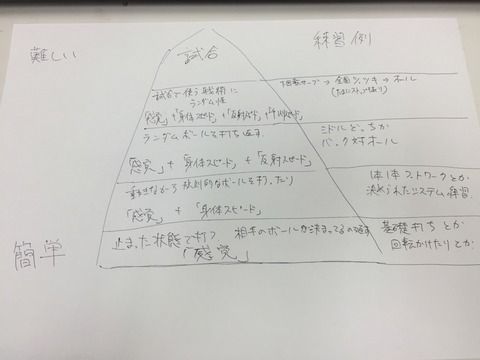 難しい
試合
練習例
試合で使う戦術に
ランダム性
「感覚」+「身体スピード」+「反射スピード」+「判断スピード」
下回転サーブ→全面ツッツキ→オール
ランダムボールを打ち返す
「感覚」+「身体スピード」+「反射スピード」
ミドルどっちか
バック対オール
動きながら規則的なボールを打ったり
「感覚」+「身体スピード」
1本1本フットワークとか
決められたシステム練習
簡単
止まった状態で打つ 相手のボールが決まってるの返す
「感覚」
基礎打ちとか
回転かけたりとか